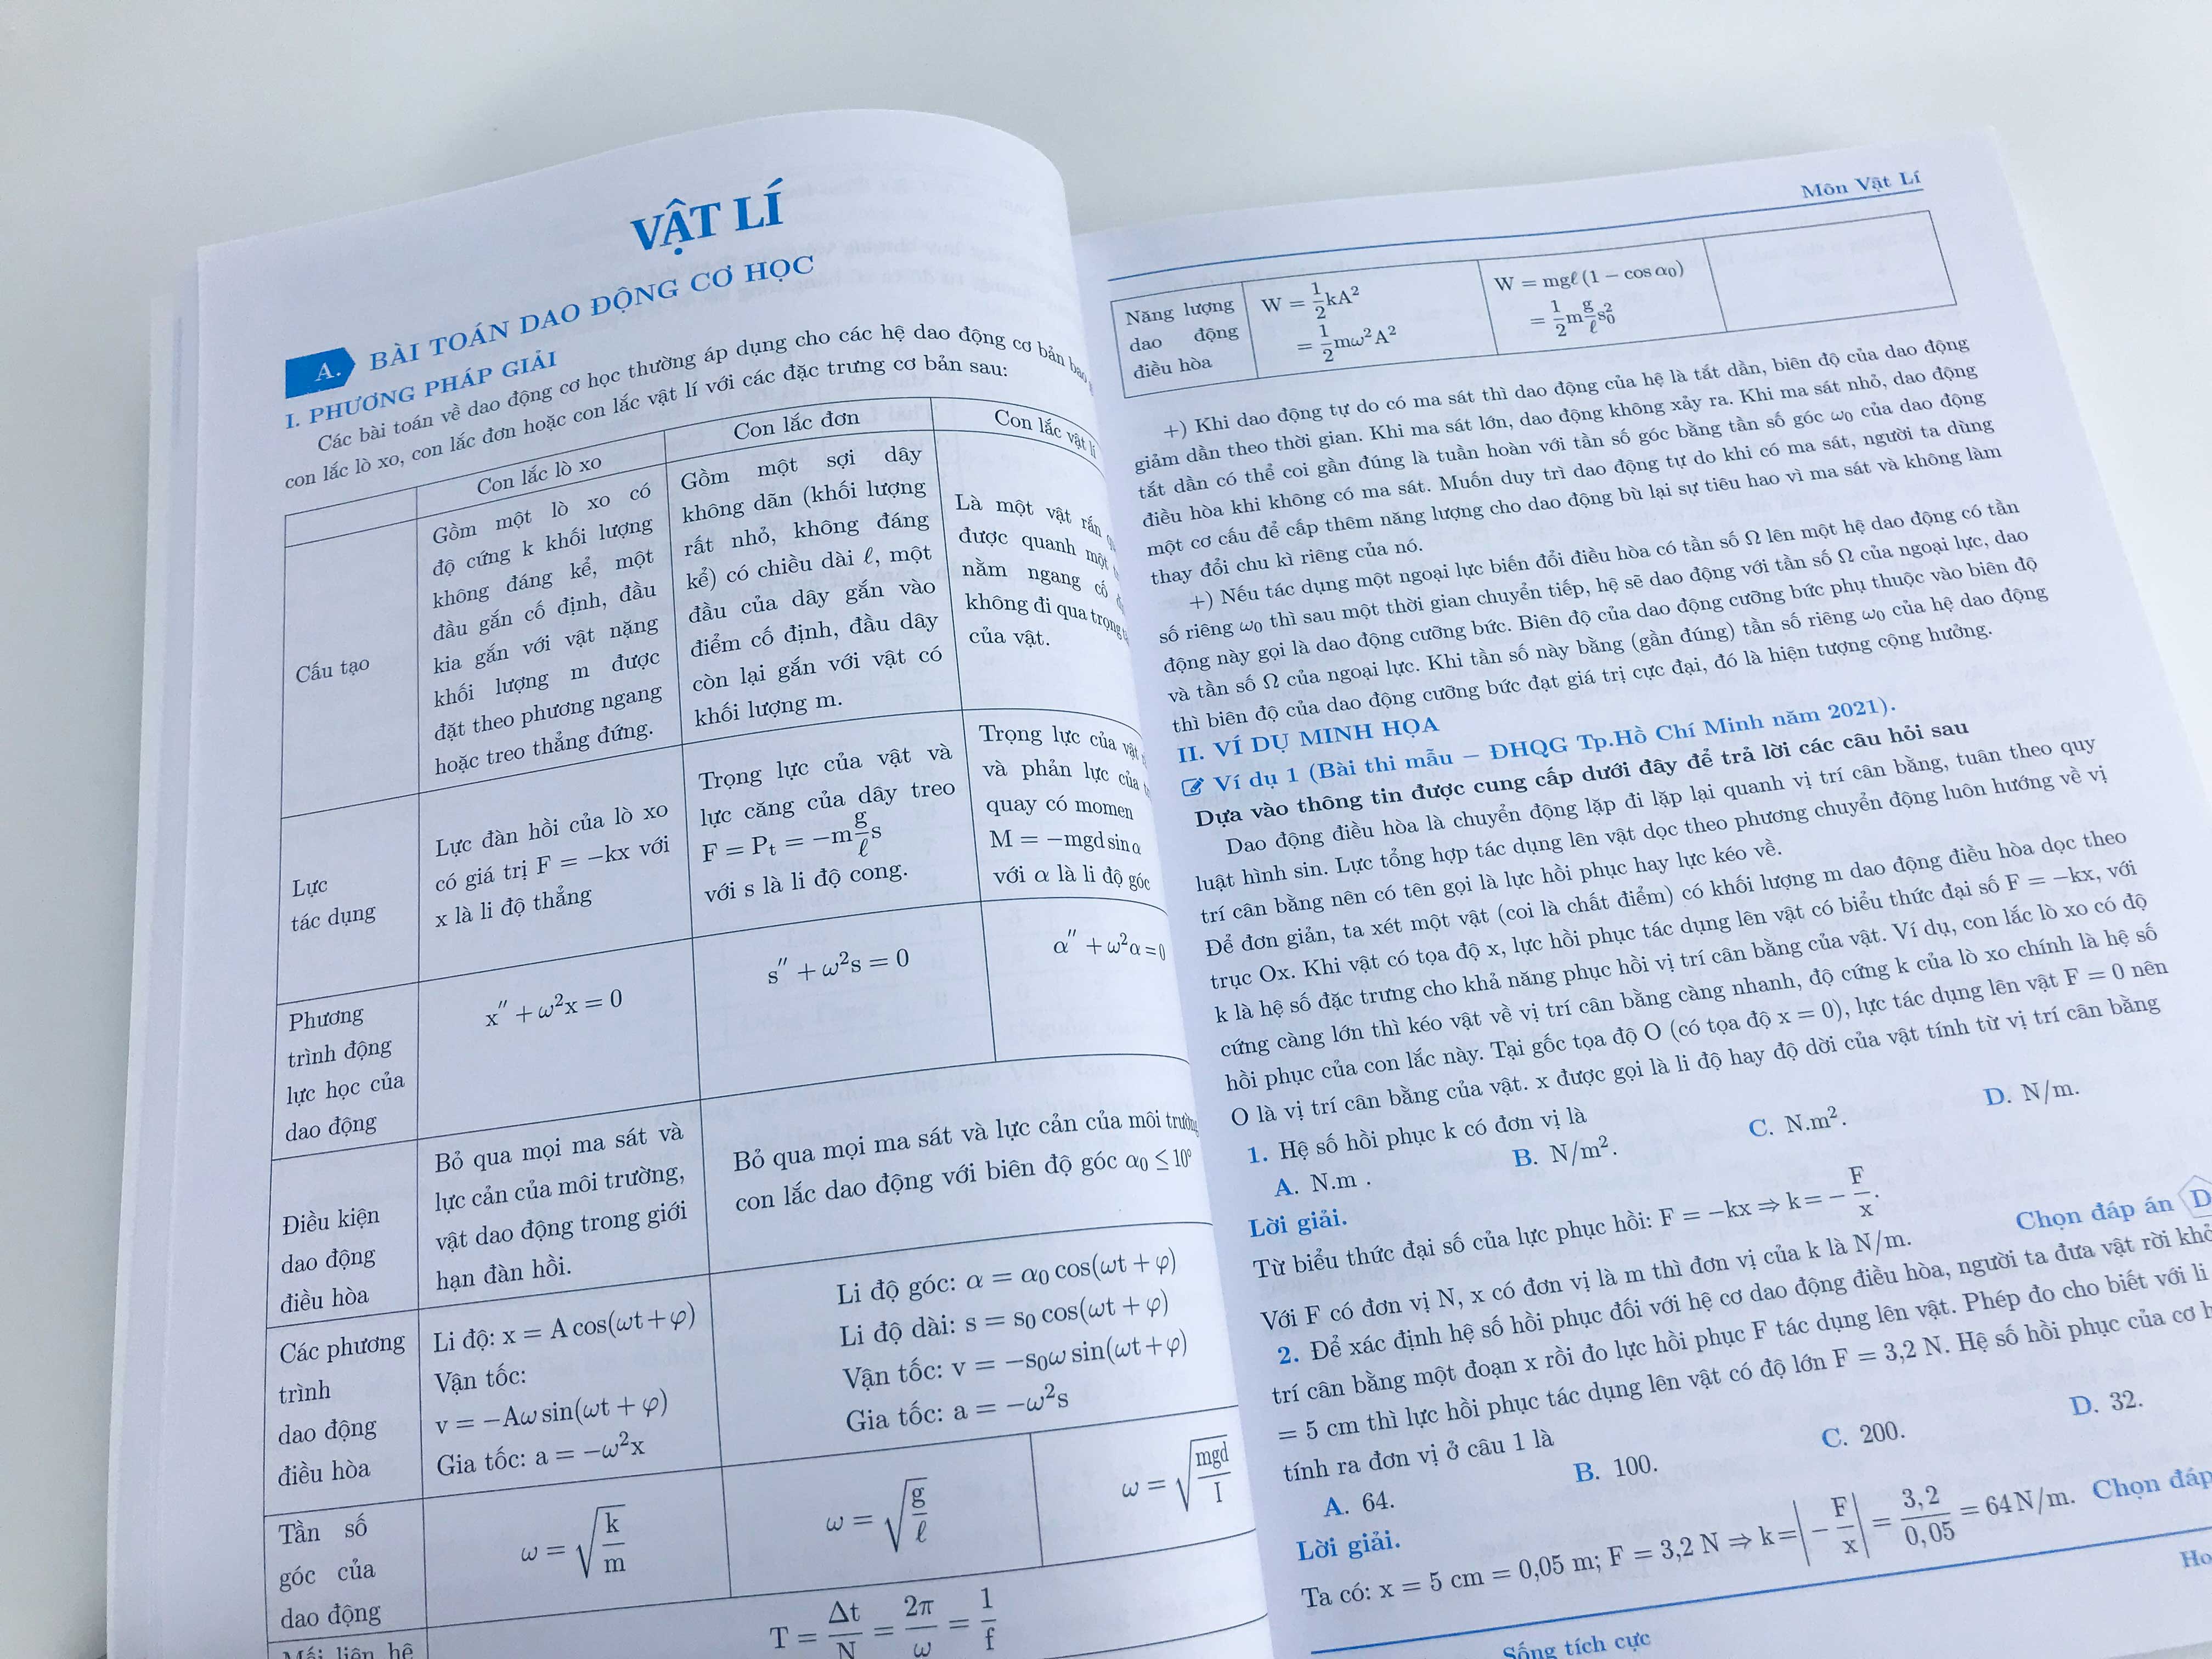 VẬT LÍ
A. BÀI TOÁN DAO ĐỘNG CƠ HỌC
I. PHƯƠNG PHÁP GIẢI
Các bài toán về dao động cơ học thường áp dụng cho các hệ dao động cơ bản bao
con lắc lò xo, con lắc đơn hoặc con lắc vật lí với các đặc trưng cơ bản sau:
Con lắc lò xo
Con lắc đơn
Con lắc vật lí
Cấu tạo
Gồm một lò xo có
độ cứng k khối lượng
không đáng kể, một
đầu gắn cố định, đầu
kia gắn với vật nặng
khối lượng m được
đặt theo phương ngang
hoặc treo thẳng đứng.
Gồm một sợi dây
không dãn (khối lượng
rất nhỏ, không đáng
kể) có chiều dài ℓ, một
đầu của dây gắn vào
điểm cố định, đầu dây
còn lại gắn với vật có
khối lượng m.
Là một vật rắn
được quanh một
nằm ngang cố
không đi qua trọng
của vật.
Lực
tác dụng
Lực đàn hồi của lò xo
có giá trị F = −kx với
x là li độ thẳng
Trọng lực của vật và
lực căng của dây treo
F = Pt = −m g/ℓ s
với s là li độ cong.
Trọng lực của vật
và phản lực của
quay có momen
M = −mgd sin α
với α là li độ góc
Phương
trình động
lực học của
dao động
x″ + ω²x = 0
s″ + ω²s = 0
α″ + ω²α = 0
Điều kiện
dao động
điều hòa
Bỏ qua mọi ma sát và
lực cản của môi trường,
vật dao động trong giới
hạn đàn hồi.
Bỏ qua mọi ma sát và lực cản của môi trường
con lắc dao động với biên độ góc α₀ ≤ 10°
Các phương
trình
dao động
điều hòa
Li độ: x = A cos(ωt + φ)
Vận tốc:
v = −Aω sin(ωt + φ)
Gia tốc: a = −ω²x
Li độ góc: α = α₀ cos(ωt + φ)
Li độ dài: s = s₀ cos(ωt + φ)
Vận tốc: v = −s₀ω sin(ωt + φ)
Gia tốc: a = −ω²s
Tần số
góc của
dao động
ω = √(k/m)
ω = √(g/ℓ)
ω = √(mgd/I)
Mối liên hệ
T = Δt/N = 2π/ω = 1/f
Môn Vật Lí
Năng lượng
dao động
điều hòa
W = 1/2 kA²
= 1/2 mω²A²
W = mgℓ (1 − cos α₀)
= 1/2 m g/ℓ s₀²
+) Khi dao động tự do có ma sát thì dao động của hệ là tắt dần, biên độ của dao động
giảm dần theo thời gian. Khi ma sát lớn, dao động không xảy ra. Khi ma sát nhỏ, dao động
tắt dần có thể coi gần đúng là tuần hoàn với tần số góc bằng tần số góc ω₀ của dao động
điều hòa khi không có ma sát. Muốn duy trì dao động tự do khi có ma sát, người ta dùng
một cơ cấu để cấp thêm năng lượng cho dao động bù lại sự tiêu hao vì ma sát và không làm
thay đổi chu kì riêng của nó.
+) Nếu tác dụng một ngoại lực biến đổi điều hòa có tần số Ω lên một hệ dao động có tần
số riêng ω₀ thì sau một thời gian chuyển tiếp, hệ sẽ dao động với tần số Ω của ngoại lực, dao
động này gọi là dao động cưỡng bức. Biên độ của dao động cưỡng bức phụ thuộc vào biên độ
và tần số Ω của ngoại lực. Khi tần số này bằng (gần đúng) tần số riêng ω₀ của hệ dao động
thì biên độ của dao động cưỡng bức đạt giá trị cực đại, đó là hiện tượng cộng hưởng.
II. VÍ DỤ MINH HỌA
Ví dụ 1 (Bài thi mẫu – ĐHQG Tp.Hồ Chí Minh năm 2021).
Dựa vào thông tin được cung cấp dưới đây để trả lời các câu hỏi sau
Dao động điều hòa là chuyển động lặp đi lặp lại quanh vị trí cân bằng, tuân theo quy
luật hình sin. Lực tổng hợp tác dụng lên vật dọc theo phương chuyển động luôn hướng về vị
trí cân bằng nên có tên gọi là lực hồi phục hay lực kéo về.
Để đơn giản, ta xét một vật (coi là chất điểm) có khối lượng m dao động điều hòa dọc theo
trục Ox. Khi vật có tọa độ x, lực hồi phục tác dụng lên vật có biểu thức đại số F = −kx, với
k là hệ số đặc trưng cho khả năng phục hồi vị trí cân bằng của vật. Ví dụ, con lắc lò xo có độ
cứng càng lớn thì kéo vật về vị trí cân bằng càng nhanh, độ cứng k của lò xo chính là hệ số
hồi phục của con lắc này. Tại gốc tọa độ O (có tọa độ x = 0), lực tác dụng lên vật F = 0 nên
O là vị trí cân bằng của vật. x được gọi là li độ hay độ dời của vật tính từ vị trí cân bằng
1. Hệ số hồi phục k có đơn vị là
A. N.m . B. N/m². C. N.m². D. N/m.
Lời giải.
Từ biểu thức đại số của lực phục hồi: F = −kx ⇒ k = − F/x.
Với F có đơn vị N, x có đơn vị là m thì đơn vị của k là N/m. Chọn đáp án D
2. Để xác định hệ số hồi phục đối với hệ cơ dao động điều hòa, người ta đưa vật rời khỏ
trí cân bằng một đoạn x rồi đo lực hồi phục F tác dụng lên vật. Phép đo cho biết với li
= 5 cm thì lực hồi phục tác dụng lên vật có độ lớn F = 3,2 N. Hệ số hồi phục của cơ h
tính ra đơn vị ở câu 1 là
A. 64. B. 100. C. 200. D. 32.
Lời giải.
Ta có: x = 5 cm = 0,05 m; F = 3,2 N ⇒ k = |− F/x| = 3,2/0,05 = 64 N/m. Chọn đáp
Sống tích cực
Ho